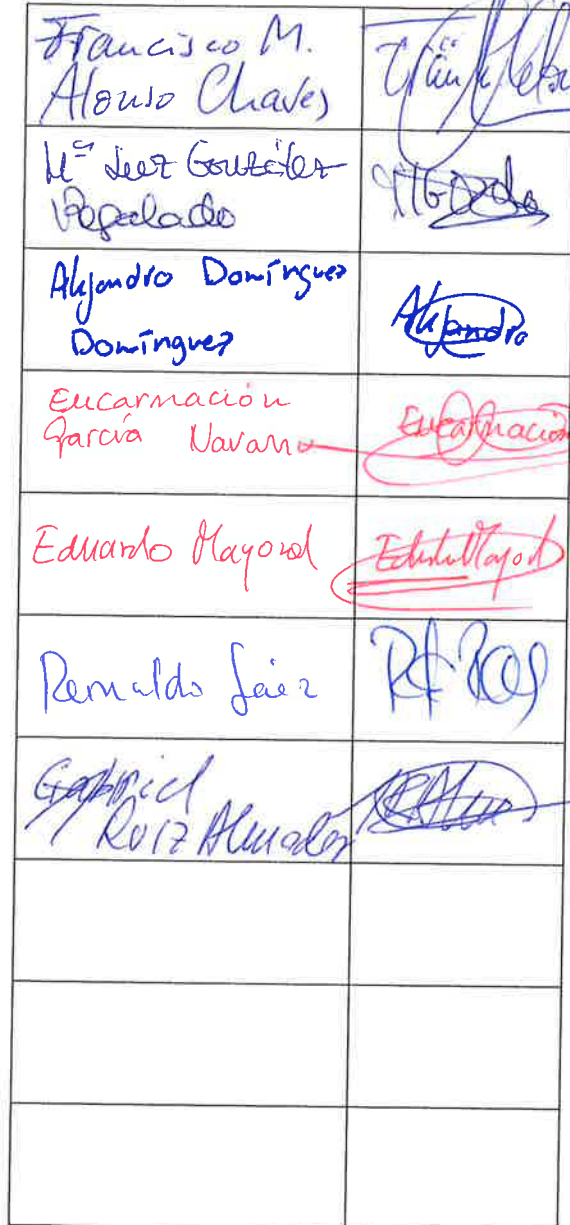 Francisco M.
Alonso Chaves
Mª Luz González
Regalado
Alejandro Domínguez
Domínguez
Alejandro
Encarnación
García Navarro
Encarnación
Eduardo Mayoral
Reinaldo Sáez
Gabriel
Ruiz Almador